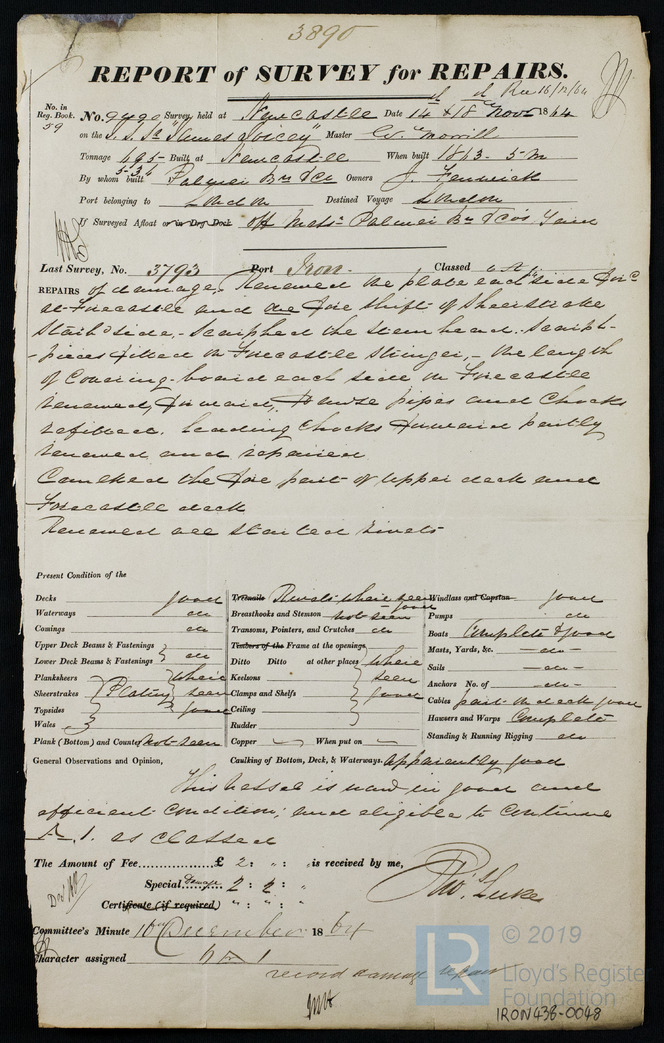 3890
REPORT of SURVEY for REPAIRS.
Rec 16/12/64
No. in
Reg. Book.
59
No. 9490 Survey held at Newcastle Date 14th & 18th Novr 1864
on the S. S. Sr "James Joicey" Master W. Morrill
Tonnage 695 Built at Newcastle When built 1863. 5 m
534
By whom built Palmer Brs & Co Owners J. Fenwick
Port belonging to London Destined Voyage London
If Surveyed Afloat or in Dry Dock off Messrs Palmer Brs & Co's Yard
Last Survey, No. 3793 Port Iron. Classed
REPAIRS of damage. Renewed the plate each side
at Forecastle and one Fore shift of Sheerstrake
Starbd side, Scarphed the stem head. Scarph-
-pieces fitted on Forecastle Stringer, the length
of Covering-board each side on Forecastle
renewed, Forward, Hawse pipes and Chocks
refitted. Leading Chocks Forward partly
renewed and repaired
Caulked the Fore part of Upper deck and
Forecastle deck
Renewed all started rivets
Present Condition of the
Decks good
Waterways do
Comings do
Upper Deck Beams & Fastenings
Lower Deck Beams & Fastenings } do
Planksheers
Sheerstrakes
Topsides
Wales
Plating where seen good
Plank (Bottom) and Counter not seen
Treenails Rivets where seen good
Breasthooks and Stemson not seen
Transoms, Pointers, and Crutches do
Timbers of the Frame at the openings
Ditto Ditto at other places
Keelsons
Clamps and Shelfs
Ceiling
Rudder
where seen good
Copper When put on
Windlass and Capstan good
Pumps do
Boats Complete & good
Masts, Yards, &c. do
Sails do
Anchors No. of do
Cables part on deck good
Hawsers and Warps Complete
Standing & Running Rigging do
General Observations and Opinion, Caulking of Bottom, Deck, & Waterways. apparently good
This vessel is now in good and
efficient condition; and eligible to continue
A. 1. as classed
The Amount of Fee £ 2: ": " is received by me,
Special Damage 2: 2: "
Certificate (if required) ": ": "
Luke
Committee's Minute 16th December 1864
Character assigned A 1
record damage repair
LR
© 2019
Lloyd's Register
Foundation
IRON438-0048